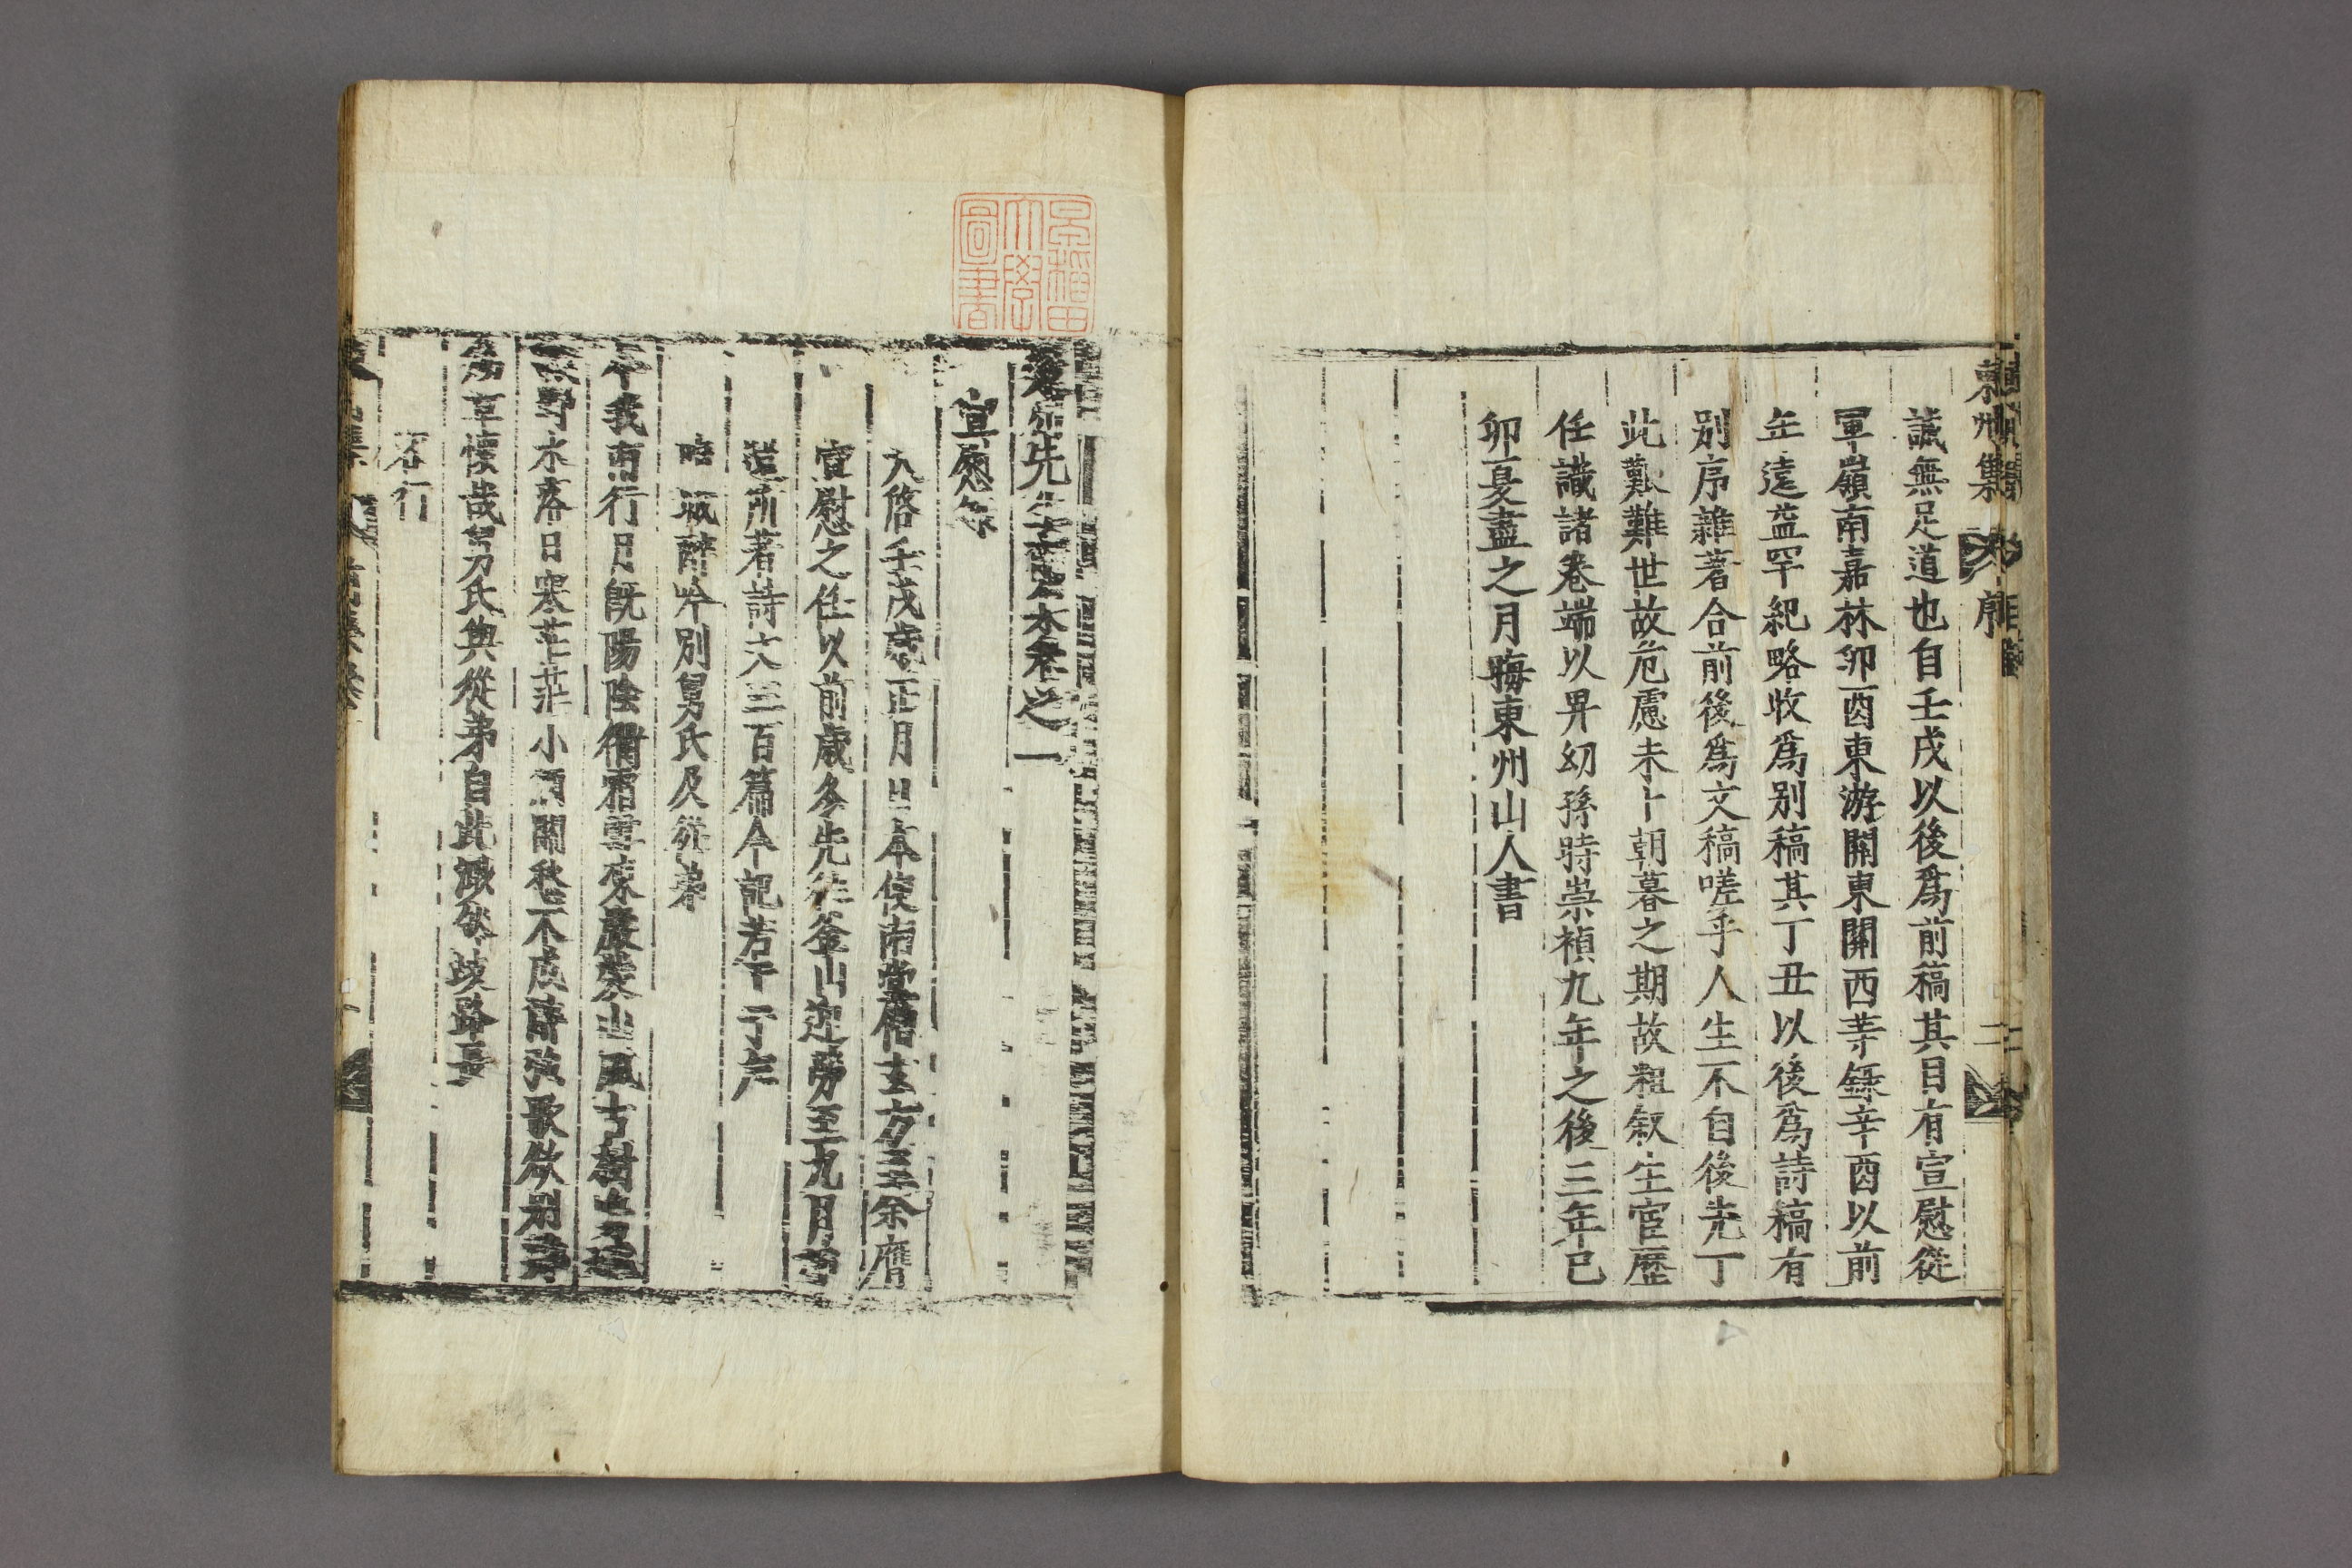 東州集 序 二
議無足道也自壬戌以後爲前稿其目有宣慰從
軍嶺南嘉林卯酉東游關東關西等錄辛酉以前
年遠益罕紀略收爲別稿其丁丑以後爲詩稿有
別序雜著合前後爲文稿嗟乎人生不自後先丁
此艱難世故危慮未卜朝暮之期故粗叙生宦歷
任識諸卷端以畀幼孫時崇禎九年之後三年己
卯夏盡之月晦東州山人書
早稻田大學圖書
東州先生前集卷之一
宣慰錄
天啓壬戌歲正月日本使南堂僧玄方至余膺
宣慰之任以前歲冬先往釜山迎勞至九月
還所著詩六三百篇今記若干于左
路城醉吟別舅氏及從弟
今我南行月旣陽陰霜雪來巖裂山風古樹
野水落日寒茫茫小酒關愁不成醉強歌欲別
爲草懷哉舅氏與從弟自此悵然歧路長
客行